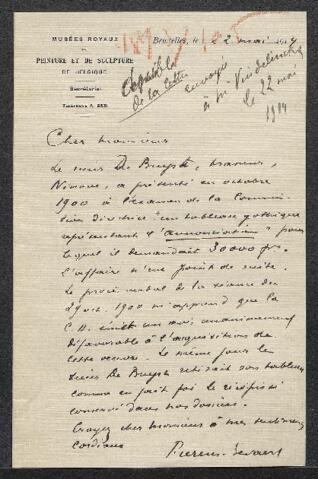 MUSÉES ROYAUX
DE
PEINTURE ET DE SCULPTURE
DE BELGIQUE
Secrétariat
Bruxelles, le 22 mai 1914
Copie
de la lettre
envoyée
à M. Vindelinckx
le 22 mai
1914
Cher monsieur
Le sieur De Bruyst, brasseur,
Ninove, a présenté en octobre
1900 à l'examen de la Commis-
sion directrice "un tableau gothique
représentant l'annonciation" pour
lequel il demandait 30000 frs.
L'affaire n'eut point de suite.
Le procès verbal de la séance du
1900 m'apprend que la
C.D. émit un avis unanimement
défavorable à l'acquisition de
cette œuvre. Le même jour le
sieur De Bruyst retirait son tableau
comme en fait foi le récépissé
conservé dans nos dossiers.
Croyez cher monsieur à mes sentiments
cordiaux
Fierens-Gevaert